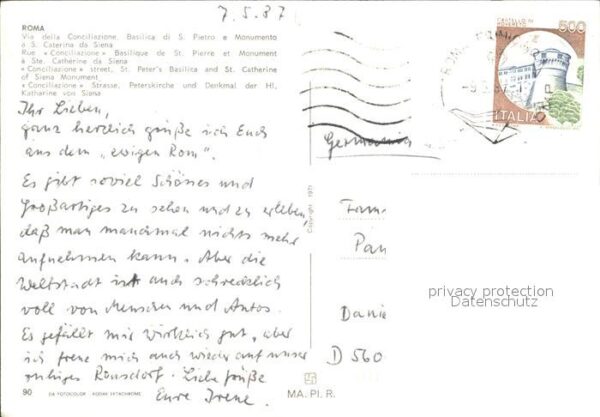 7.5.87
ROMA
Via della Conciliazione, Basilica di S. Pietro e Monumento
a S. Caterina da Siena
Rue «Conciliazione» Basilique de St. Pierre et Monument
à Ste. Cathérine da Siena
«Conciliazione» street, St. Peter's Basilica and St. Catherine
of Siena Monument
«Conciliazione» Strasse, Peterskirche und Denkmal der Hl.
Katharine von Siena
Ihr Lieben,
ganz herzlich grüße ich Euch
aus dem „ewigen Rom".
Es gibt soviel Schönes und
Großartiges zu sehen und zu erleben,
daß man manchmal nichts mehr
aufnehmen kann. Aber die
Weltstadt ist auch schrecklich
voll von Menschen und Autos.
Es gefällt mir wirklich gut, aber
ich freue mich auch wieder auf unser
ruhiges Ronsdorf. Liebe Grüße
Eure Irene.
90
DA FOTOCOLOR KODAK EKTACHROME
Copyright 1971
MA. PI. R.
CASTELLO DI
ROVERETO
500
ITALIA
Germania
Fam
Pan
Danie
D 560
privacy protection
Datenschutz